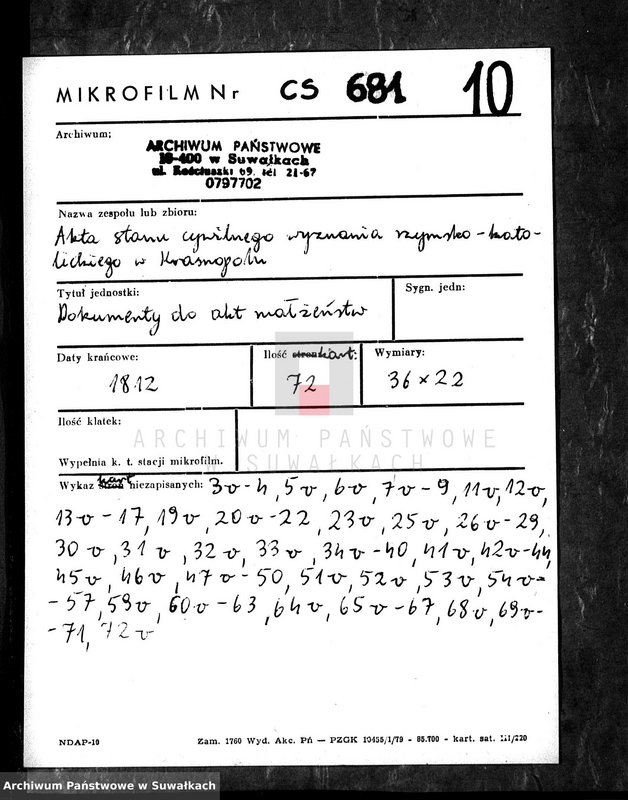 MIKROFILM Nr CS 681 10
Archiwum:
ARCHIWUM PAŃSTWOWE
16-400 w Suwałkach
ul. Kościuszki 69. tel 21-67
0797702
Nazwa zespołu lub zbioru:
Akta stanu cywilnego wyznania rzymsko-kato-
lickiego w Krasnopolu
Tytuł jednostki:
Sygn. jedn:
Dokumenty do akt małżeństw
Daty krańcowe:
Ilość stron kart:
Wymiary:
1812
72
36 × 22
Ilość klatek:
ARCHIWUM PAŃSTWOWE
SUWAŁKACH
Wypełnia k. t. stacji mikrofilm.
Wykaz stron kart niezapisanych: 3v-4, 5v, 6v, 7v-9, 11v, 12v,
13v-17, 19v, 20v-22, 23v, 25v, 26v-29,
30v, 31v, 32v, 33v, 34v-40, 41v, 42v-44,
45v, 46v, 47v-50, 51v, 52v, 53v, 54v-
-57, 59v, 60v-63, 64v, 65v-67, 68v, 69v-
-71, 72v
NDAP-10
Zam. 1760 Wyd. Akc. Pń — PZGK 10455/1/79 - 85.700 - kart. sat. III/220
Archiwum Państwowe w Suwałkach